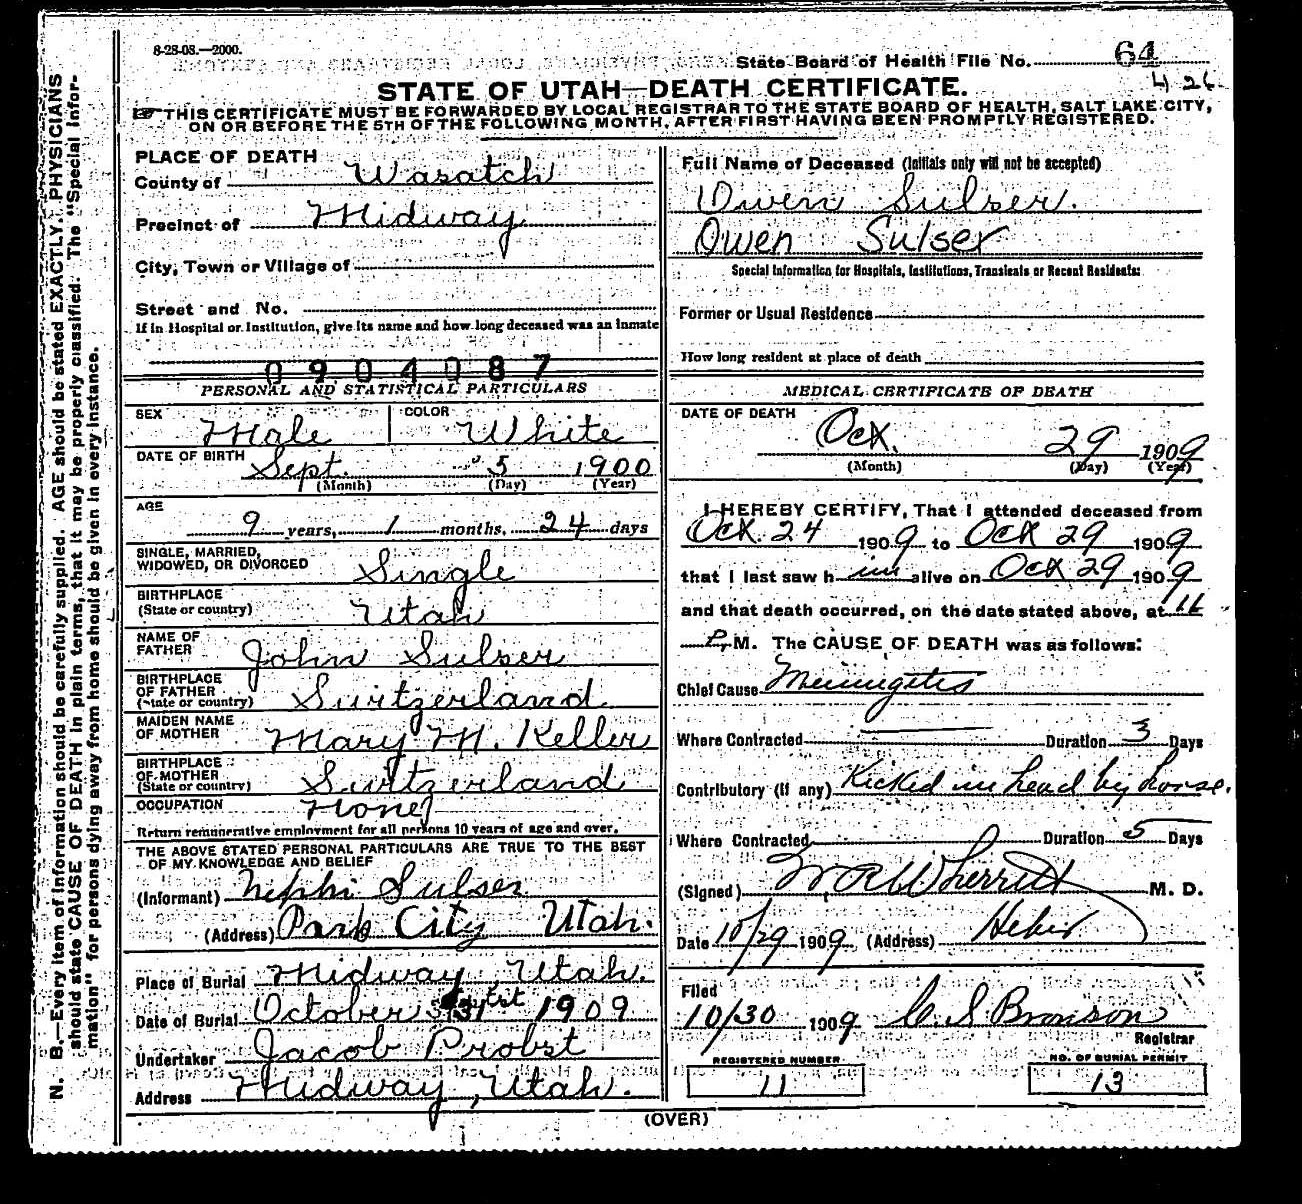 8-28-08.—2000.
State Board of Health File No. 64
426
STATE OF UTAH—DEATH CERTIFICATE.
THIS CERTIFICATE MUST BE FORWARDED BY LOCAL REGISTRAR TO THE STATE BOARD OF HEALTH, SALT LAKE CITY,
ON OR BEFORE THE 5TH OF THE FOLLOWING MONTH, AFTER FIRST HAVING BEEN PROMPTLY REGISTERED.
N. B.—Every item of information should be carefully supplied. AGE should be stated EXACTLY. PHYSICIANS
should state CAUSE OF DEATH in plain terms, that it may be properly classified. The "Special Infor-
mation" for persons dying away from home should be given in every instance.
PLACE OF DEATH
County of Wasatch
Precinct of Midway
City, Town or Village of
Street and No.
If in Hospital or Institution, give its name and how long deceased was an inmate
0904087
PERSONAL AND STATISTICAL PARTICULARS
SEX Male COLOR White
DATE OF BIRTH Sept. 5 1900
(Month) (Day) (Year)
AGE
9 years, 1 months, 24 days
SINGLE, MARRIED,
WIDOWED, OR DIVORCED Single
BIRTHPLACE
(State or country) Utah
NAME OF
FATHER John Sulser
BIRTHPLACE
OF FATHER
(State or country) Switzerland
MAIDEN NAME
OF MOTHER Mary M. Keller
BIRTHPLACE
OF MOTHER
(State or country) Switzerland
OCCUPATION None
Return remunerative employment for all persons 10 years of age and over.
THE ABOVE STATED PERSONAL PARTICULARS ARE TRUE TO THE BEST
OF MY KNOWLEDGE AND BELIEF
(Informant) Nephi Sulser
(Address) Park City Utah.
Place of Burial Midway, Utah.
Date of Burial October 31st 1909
Undertaker Jacob Probst
Address Midway, Utah.
Full Name of Deceased (Initials only will not be accepted)
Owen Sulser.
Owen Sulser
Special Information for Hospitals, Institutions, Transients or Recent Residents:
Former or Usual Residence
How long resident at place of death
MEDICAL CERTIFICATE OF DEATH
DATE OF DEATH
Oct. 29 1909
(Month) (Day) (Year)
I HEREBY CERTIFY, That I attended deceased from
Oct. 24 1909 to Oct 29 1909
that I last saw him alive on Oct 29 1909
and that death occurred, on the date stated above, at 11
P. M. The CAUSE OF DEATH was as follows:
Chief Cause Meningitis
Where Contracted Duration 3 Days
Contributory (if any) Kicked in head by horse.
Where Contracted Duration 5 Days
(Signed) W R Wherritt M. D.
Date 10/29 1909 (Address) Heber
Filed
10/30 1909 C. S Bronson
Registrar
REGISTERED NUMBER
11
NO. OF BURIAL PERMIT
13
(OVER)